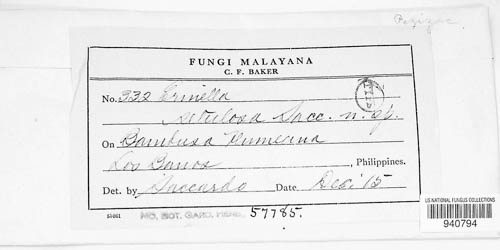 Pezizac
FUNGI MALAYANA
C. F. BAKER
No. 332 Erinella
setulosa Sacc. n. sp.
On Bambusa Blumeana
Los Banos, Philippines.
Det. by Saccardo Date. Dec. '15
51061
MO. BOT. GARD. HERB. 57785.
US NATIONAL FUNGUS COLLECTIONS
940794